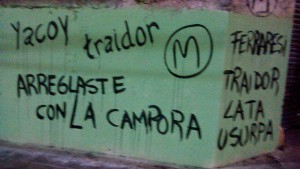 Yacoy traidor
M
ARREGLASTE
CON LA CAMPORA
FERRARESI
TRAIDOR
LATA
USURPA